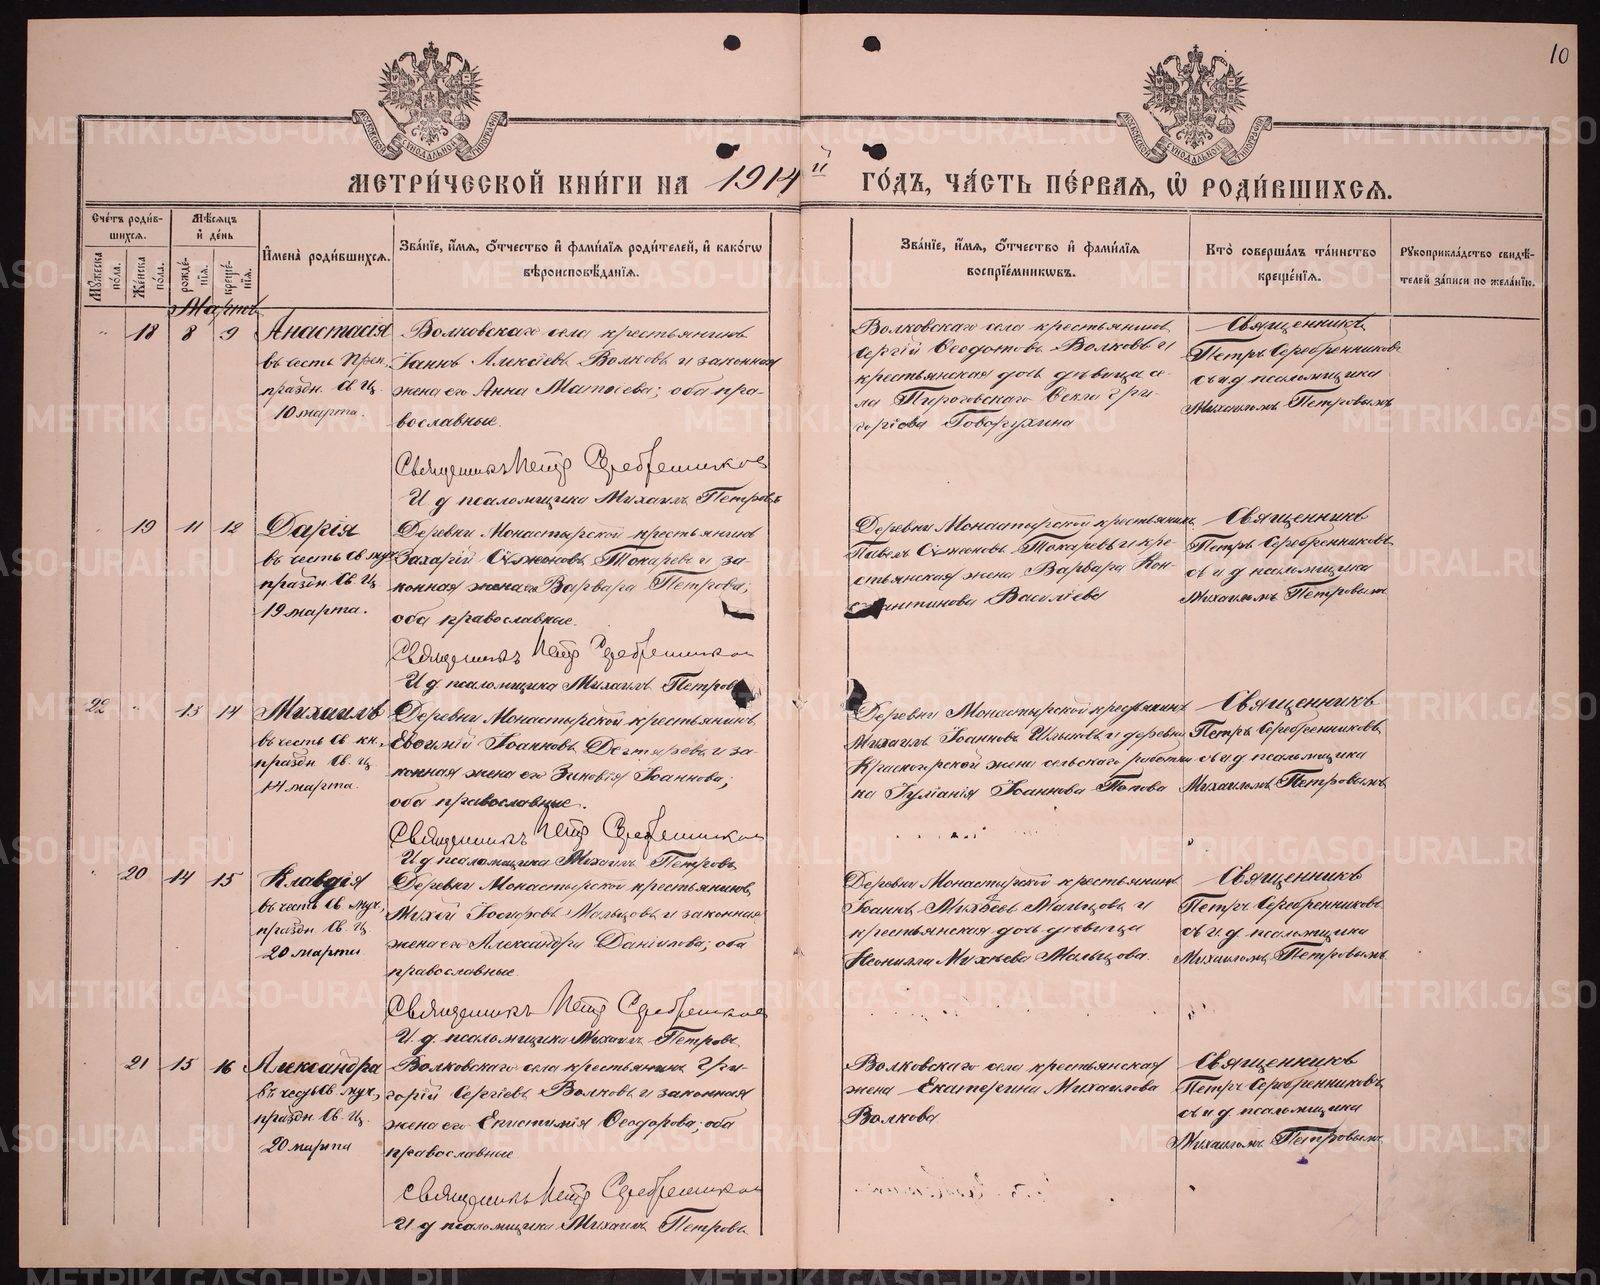 10
МЕТРИ́ЧЕСКОЙ КНИ́ГИ НА 1914 й ГО́ДЪ, ЧА́СТЬ ПЕ́РВАЯ, Ѡ РОДИ́ВШИХСЯ.
Сче́тъ роди́в-
шихся.
Мѣ́сяцъ
и де́нь
Му́жеска по́ла.
Же́нска по́ла.
рожде́-нія.
креще́-нія.
Имена̀ роди́вшихся.
Зва́ніе, и́мя, о́тчество и фами́лія роди́телей, и како́гѡ
вѣроисповѣ́данія.
Зва́ніе, и́мя, о́тчество и фами́лія
воспріе́мниковъ.
Кто̀ соверша́лъ та́инство
креще́нія.
Рукоприкла́дство свидѣ́-
телей за́писи по жела́нію.
Мартъ
18 8 9
Анастасія
въ честь Прен.
праздн. Св. Ц.
10 марта.
Волковскаго села крестьянинъ
Іаннъ Алексіевъ Волковъ и законная
жена его Анна Матѳіева; оба пра-
вославные.
Священникъ Петр Серебренников
И д псаломщика Михаилъ Петровъ
Волковскаго села крестьянинъ
Сергій Ѳеодотовъ Волковъ и
крестьянская дочь дѣвица се-
ла Пироговскаго Ѳекла Гри-
горіева Говорухина
Священникъ
Петръ Серебренниковъ
съ и д псаломщика
Михаиломъ Петровымъ
19 11 12
Дарія
въ честь Св муч
праздн Св. Ц
19 марта.
Деревни Монастырской крестьянинъ
Захарій Сѵмеоновъ Токаревъ и за-
конная жена его Варвара Петрова;
оба православные.
Священникъ Петр Серебренников
И д псаломщика Михаилъ Петровъ
Деревни Монастырской крестьянинъ
Павелъ Сѵмеоновъ Токаревъ и кре-
стьянская жена Варвара Кон-
стантинова Василіева
Священникъ
Петръ Серебренниковъ
съ и д псаломщика
Михаиломъ Петровымъ
22 13 14
Михаилъ
въ честь Св. кн.
праздн Св. Ц
14 марта.
Деревни Монастырской крестьянинъ
Евѳимій Іоанновъ Дегтяревъ и за-
конная жена его Зиновія Іоаннова;
оба православные.
Священникъ Петр Серебренников
И д псаломщика Михаилъ Петровъ
Деревни Монастырской крестьянинъ
Михаилъ Іоанновъ и деревни
Красногорской жена сельскаго работни
ка Іуліанія Іоаннова Попова
Священникъ
Петръ Серебренниковъ
съ и д псаломщика
Михаиломъ Петровымъ
20 14 15
Клавдія
въ честь Св. муч.
праздн Св. Ц
20 марта
Деревни Монастырской крестьянинъ
Михей Іосифовъ Мальцовъ и законная
жена его Александра Даніилова; оба
православные
Священникъ Петр Серебренников
И. д. псаломщика Михаилъ Петровъ
Деревни Монастырской крестьянинъ
Іоаннъ Михѣевъ Мальцовъ и
крестьянская дочь дѣвица
Неонилла Михѣева Мальцова.
Священникъ
Петръ Серебренниковъ
съ и. д псаломщика
Михаиломъ Петровымъ
21 15 16
Александра
въ честь Св муч.
праздн. Св. Ц.
20 марта
Волковскаго села крестьянинъ Гри-
горій Сергіевъ Волковъ и законная
жена его Епистимія Ѳеодорова; оба
православные
Священникъ Петр Серебренников
И д псаломщика Михаилъ Петровъ
Волковскаго села крестьянская
жена Екатерина Михаилова
Волкова
Священникъ
Петръ Серебренниковъ
съ и д псаломщика
Михаиломъ Петровымъ
METRIKI.GASO-URAL.RU